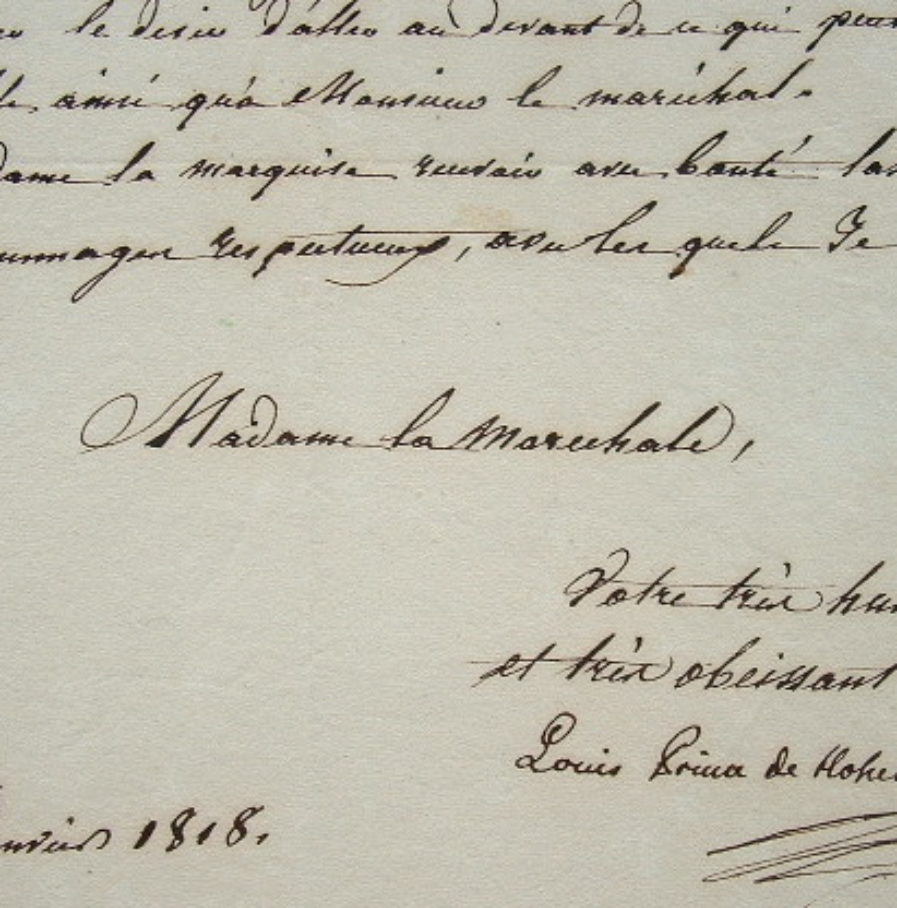 le desir d'aller au devant de ce qui peut
ainsi qu'a Monsieur le maréchal.
dame la marquise recevoir avec bonté les
hommages respectueux, avec les quels Je
Madame la Marechale,
Votre très hum
et très obeissant
Louis Prince de Hohe
anvier 1818.